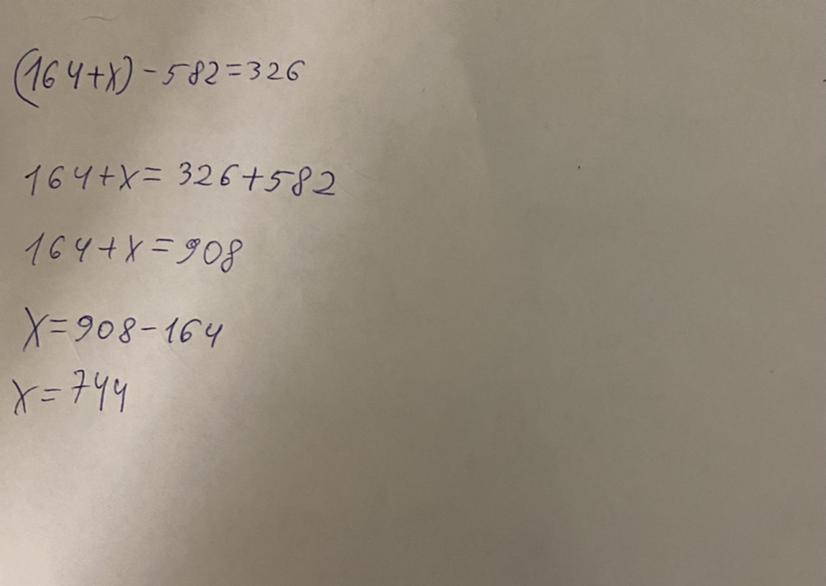 (164+x)-582=326
164+x=326+582
164+x=908
x=908-164
x=744